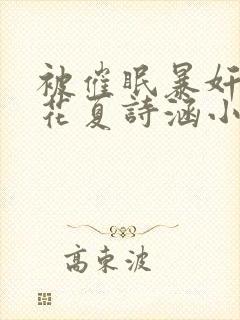 被催眠暴奸
花夏詩涵小
高東波